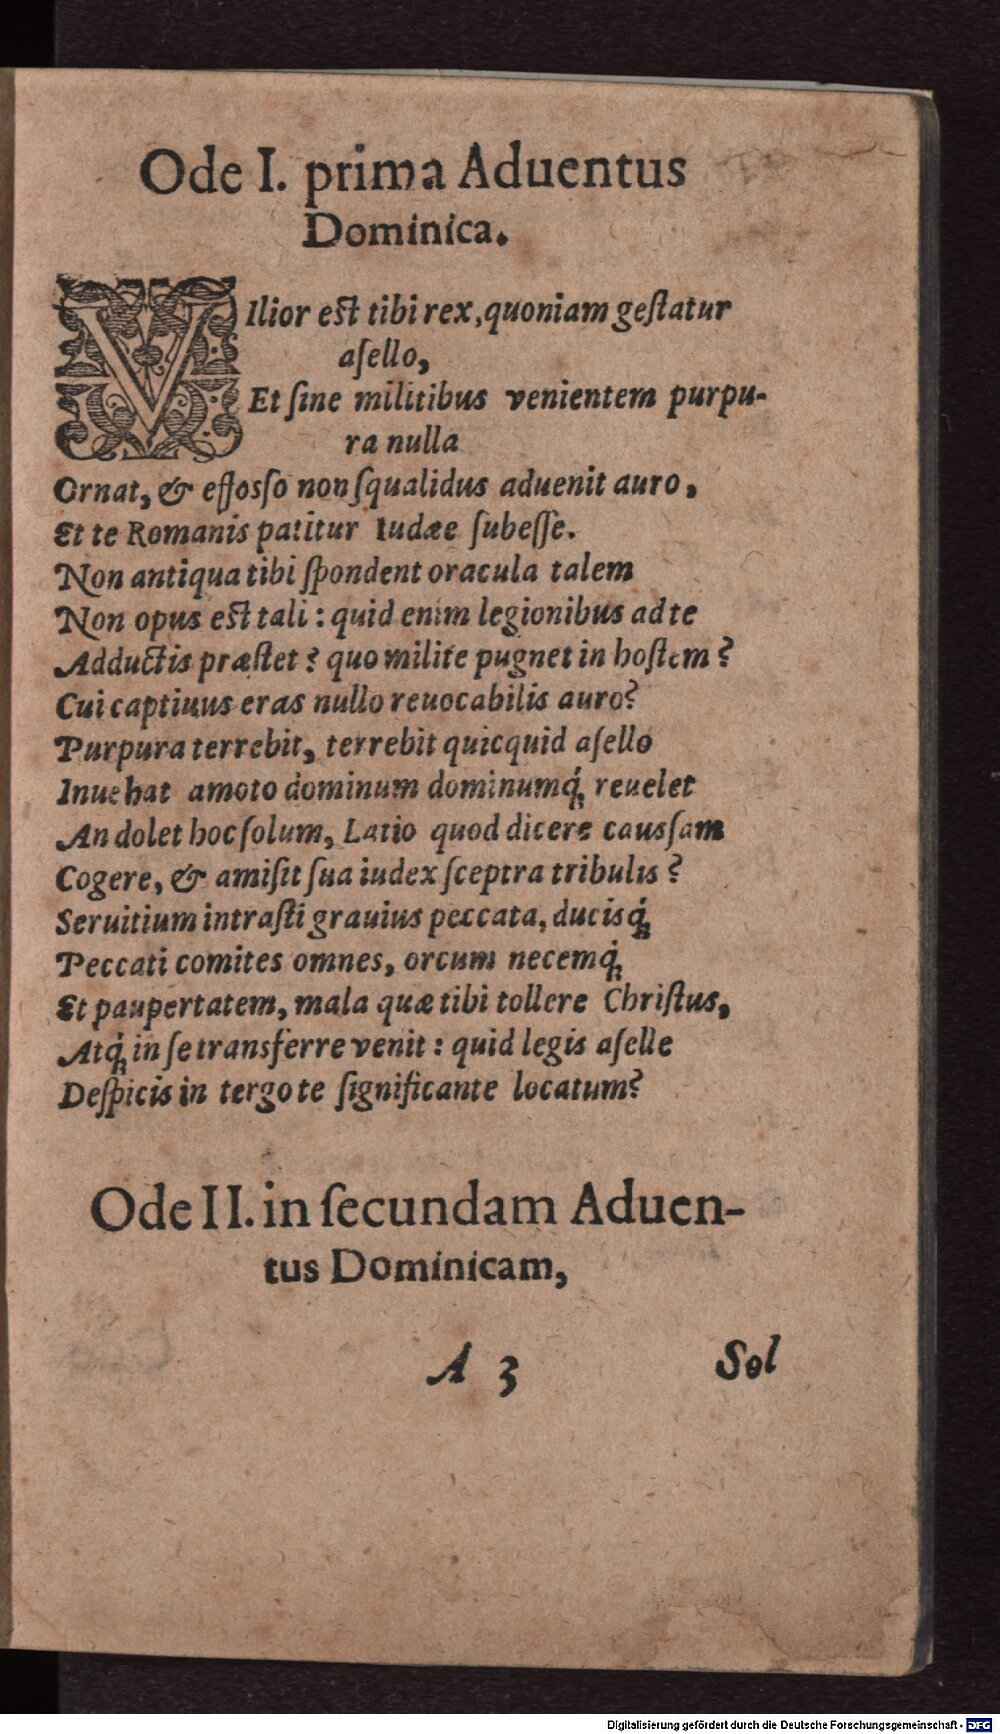 Ode I. prima Aduentus
Dominica.
VIlior est tibi rex, quoniam geſtatur
aſello,
Et ſine militibus venientem purpu-
ra nulla
Ornat, & effosſo non ſqualidus aduenit auro,
Et te Romanis patitur Iudæe ſubeſſe.
Non antiqua tibi ſpondent oracula talem
Non opus est tali: quid enim legionibus ad te
Adductis præſtet? quo milite pugnet in hoſtem?
Cui captiuus eras nullo reuocabilis auro?
Purpura terrebit, terrebit quicquid aſello
Inuehat amoto dominum dominumq́; reuelet
An dolet hoc ſolum, Latio quod dicere causſam
Cogere, & amiſit ſua iudex ſceptra tribulis?
Seruitium intraſti grauius peccata, ducisq́;
Peccati comites omnes, orcum necemq́;
Et paupertatem, mala quæ tibi tollere Chriſtus,
Atq́; in ſe transferre venit: quid legis aſelle
Deſpicis in tergo te ſignificante locatum?
Ode II. in ſecundam Aduen-
tus Dominicam,
A 3 Sol
Digitalisierung gefördert durch die Deutsche Forschungsgemeinschaft - DFG